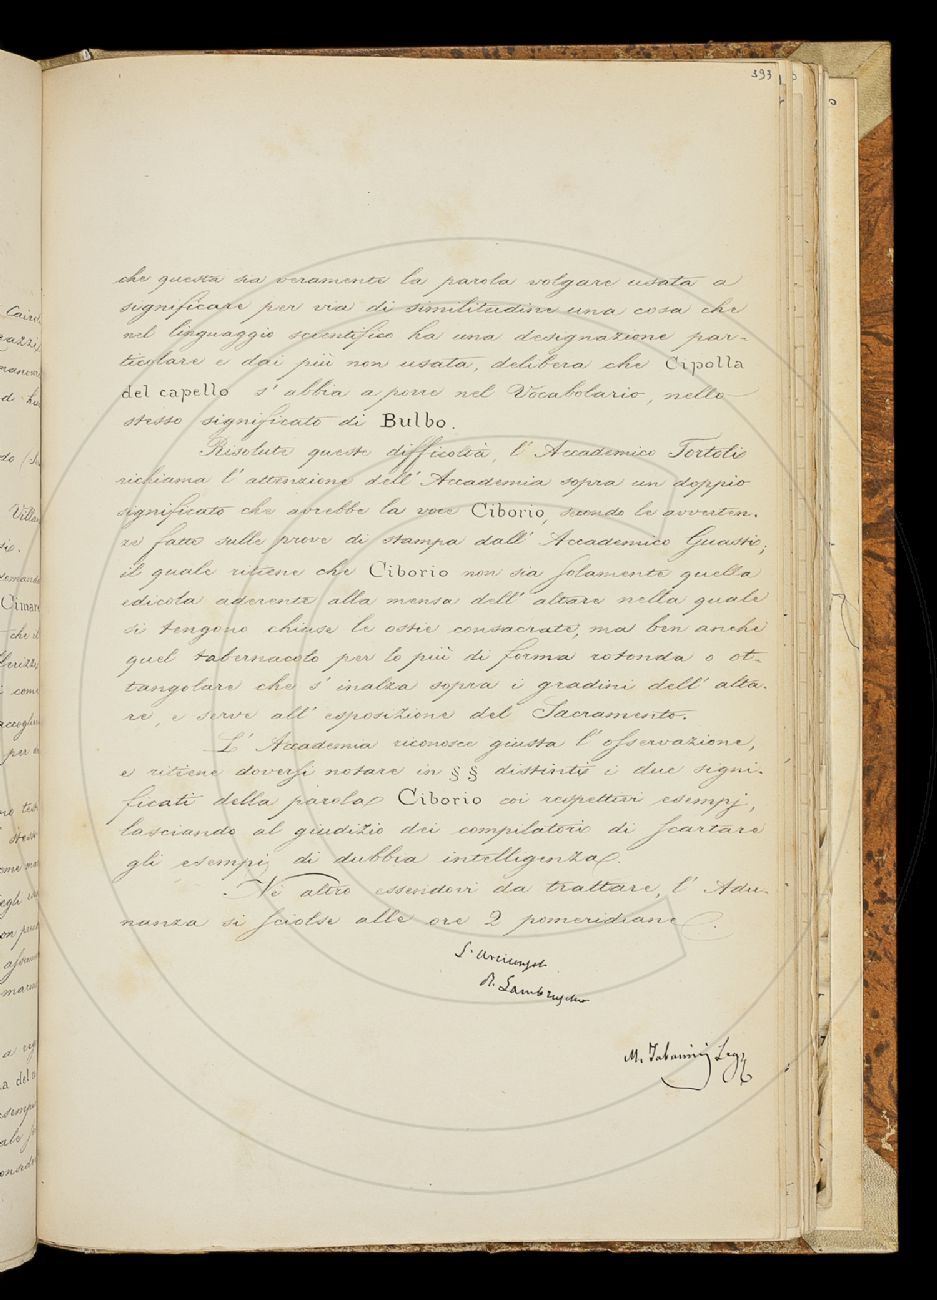 393
che questa sia veramente la parola volgare usata a
significare per via di similitudine una cosa che
nel linguaggio scientifico ha una designazione par-
ticolare e dai più non usata, delibera che Cipolla
del capello s'abbia a porre nel Vocabolario, nello
stesso significato di Bulbo.
Risolute queste difficoltà, l'Accademico Tortoli
richiama l'attenzione dell'Accademia sopra un doppio
significato che avrebbe la voce Ciborio, secondo le avverten-
ze fatte sulle prove di stampa dall'Accademico Guasti;
il quale ritiene che Ciborio non sia solamente quella
edicola aderente alla mensa dell'altare nella quale
si tengono chiuse le ostie consacrate, ma ben anche
quel tabernacolo per lo più di forma rotonda o ot-
tangolare che s'inalza sopra i gradini dell'alta-
re, e serve all'esposizione del Sacramento.
L'Accademia riconosce giusta l'osservazione,
e ritiene doversi notare in § § distinti i due signi-
ficati della parola Ciborio coi respettivi esempj,
lasciando al giudizio dei compilatori di scartare
gli esempi di dubbia intelligenza.
Nè altro essendovi da trattare, l'Adu-
nanza si sciolse alle ore 2 pomeridiane.
L'Arciconsolo
R. Lambruschini
M. Tabarrini Seg.